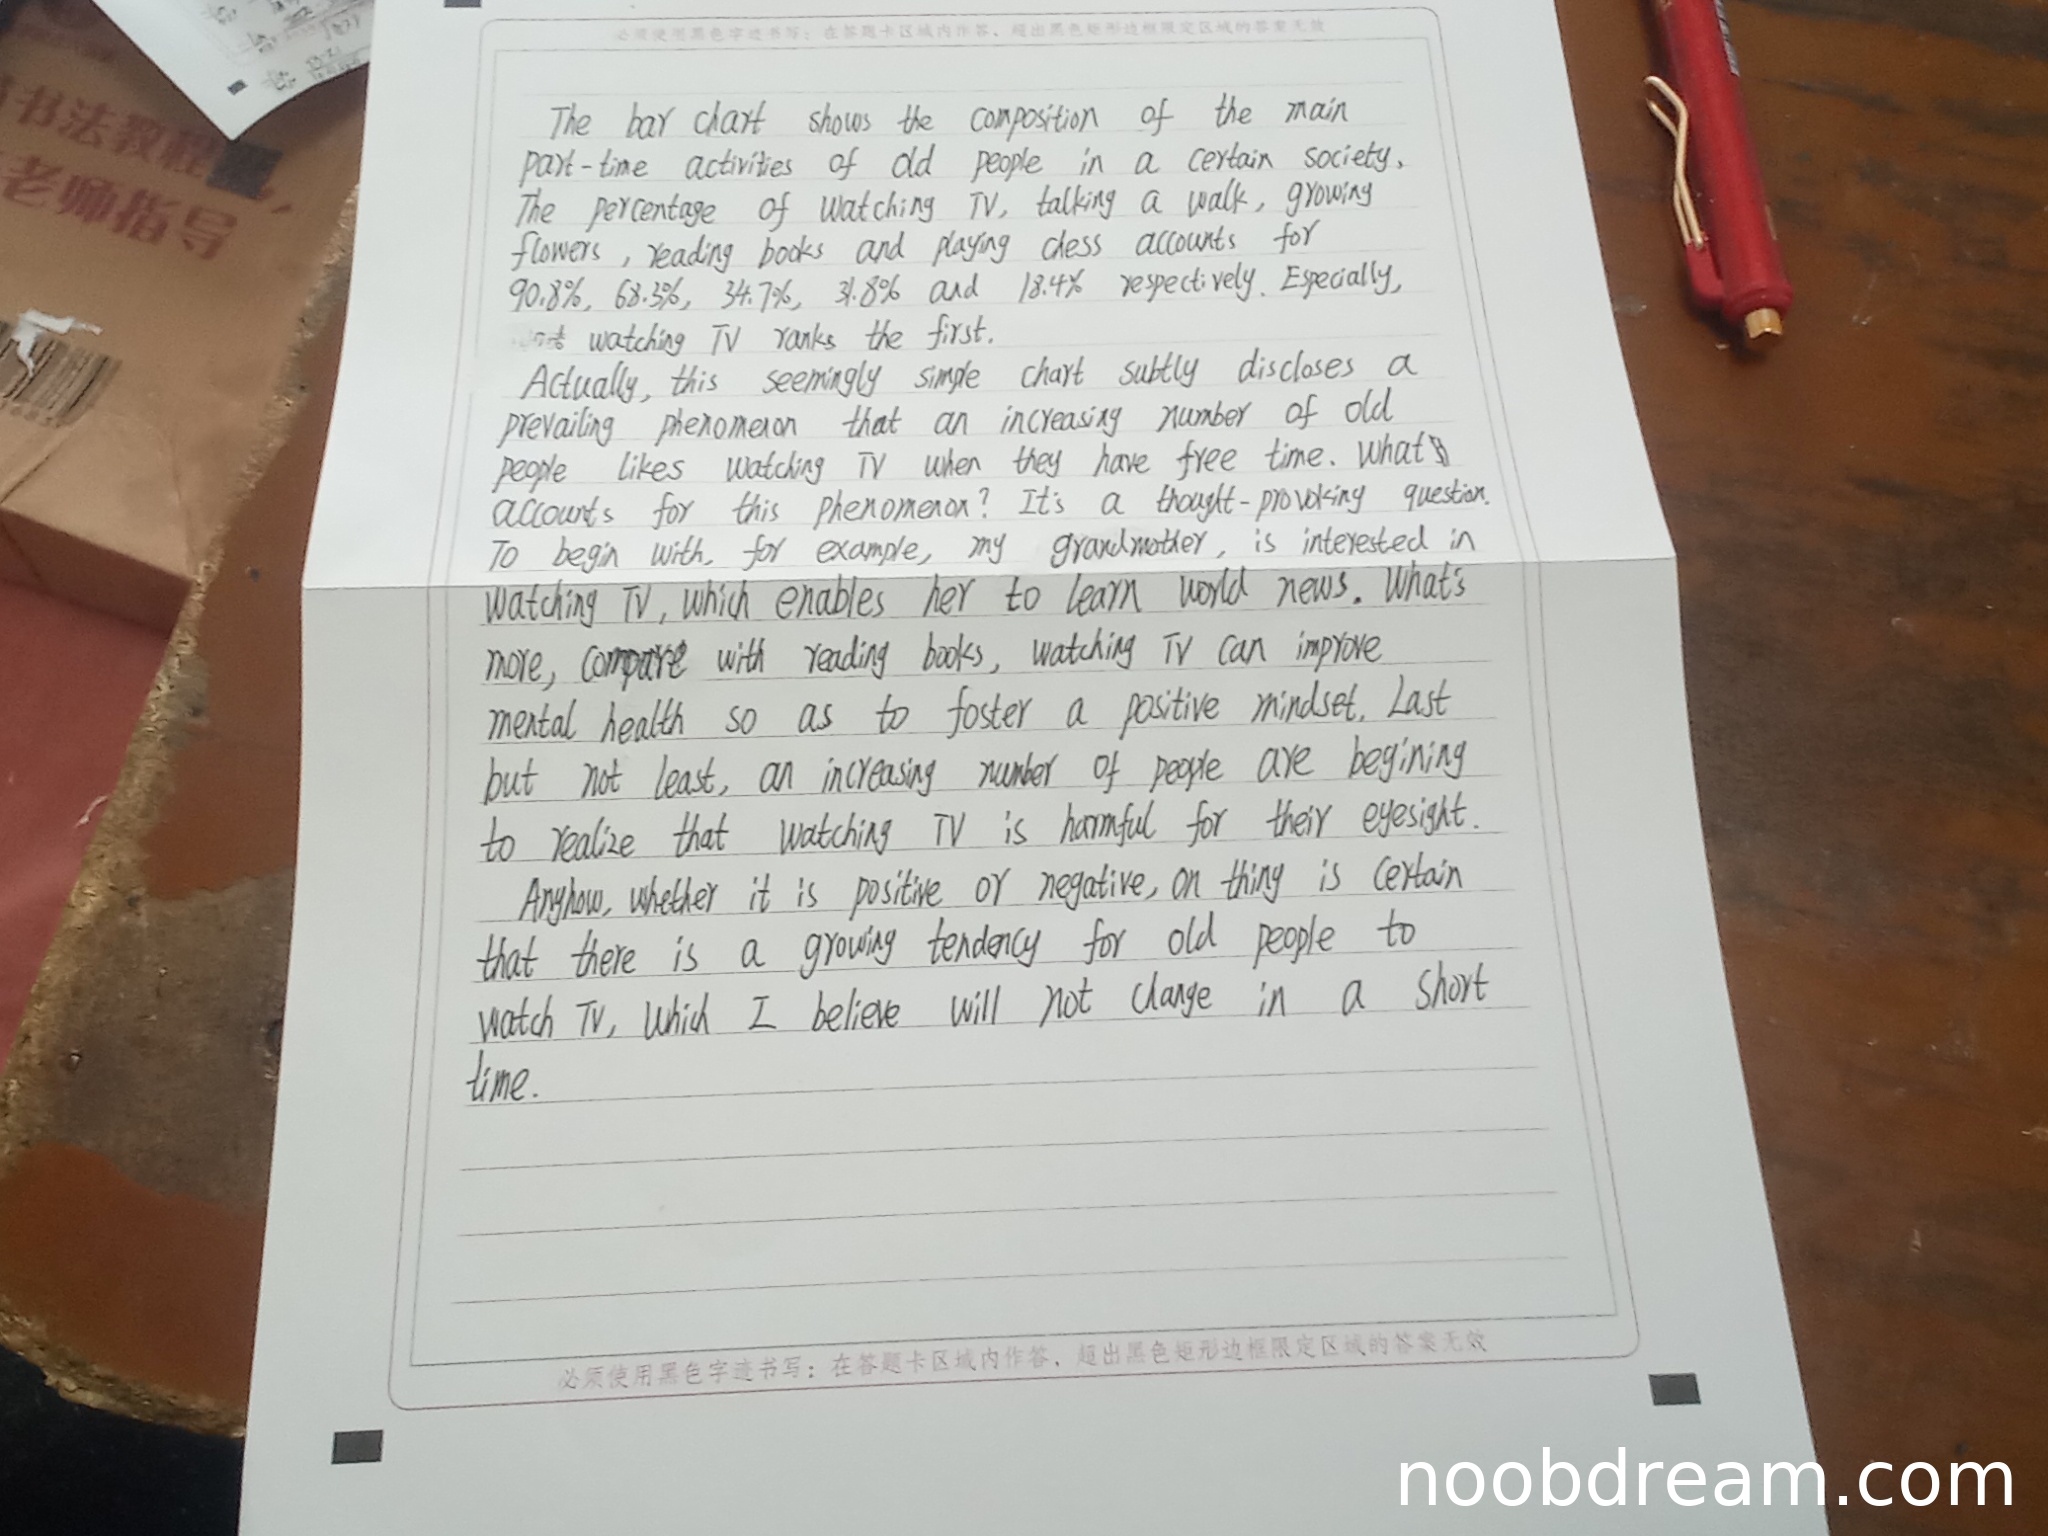 必须使用黑色字迹书写；在答题卡区域内作答，超出黑色矩形边框限定区域的答案无效
书法教程
老师指导
The bar chart shows the composition of the main
part-time activities of old people in a certain society.
The percentage of watching TV, talking a walk, growing
flowers, reading books and playing chess accounts for
90.8%, 68.3%, 34.7%, 31.8% and 18.4% respectively. Especially,
watching TV ranks the first.
Actually, this seemingly simple chart subtly discloses a
prevailing phenomenon that an increasing number of old
people likes watching TV when they have free time. What
accounts for this phenomenon? It's a thought-provoking question.
To begin with, for example, my grandmother, is interested in
watching TV, which enables her to learn world news. What's
more, compare with reading books, watching TV can improve
mental health so as to foster a positive mindset. Last
but not least, an increasing number of people are begining
to realize that watching TV is harmful for their eyesight.
Anyhow, whether it is positive or negative, on thing is certain
that there is a growing tendency for old people to
watch TV, which I believe will not change in a short
time.
必须使用黑色字迹书写；在答题卡区域内作答，超出黑色矩形边框限定区域的答案无效
noobdream.com